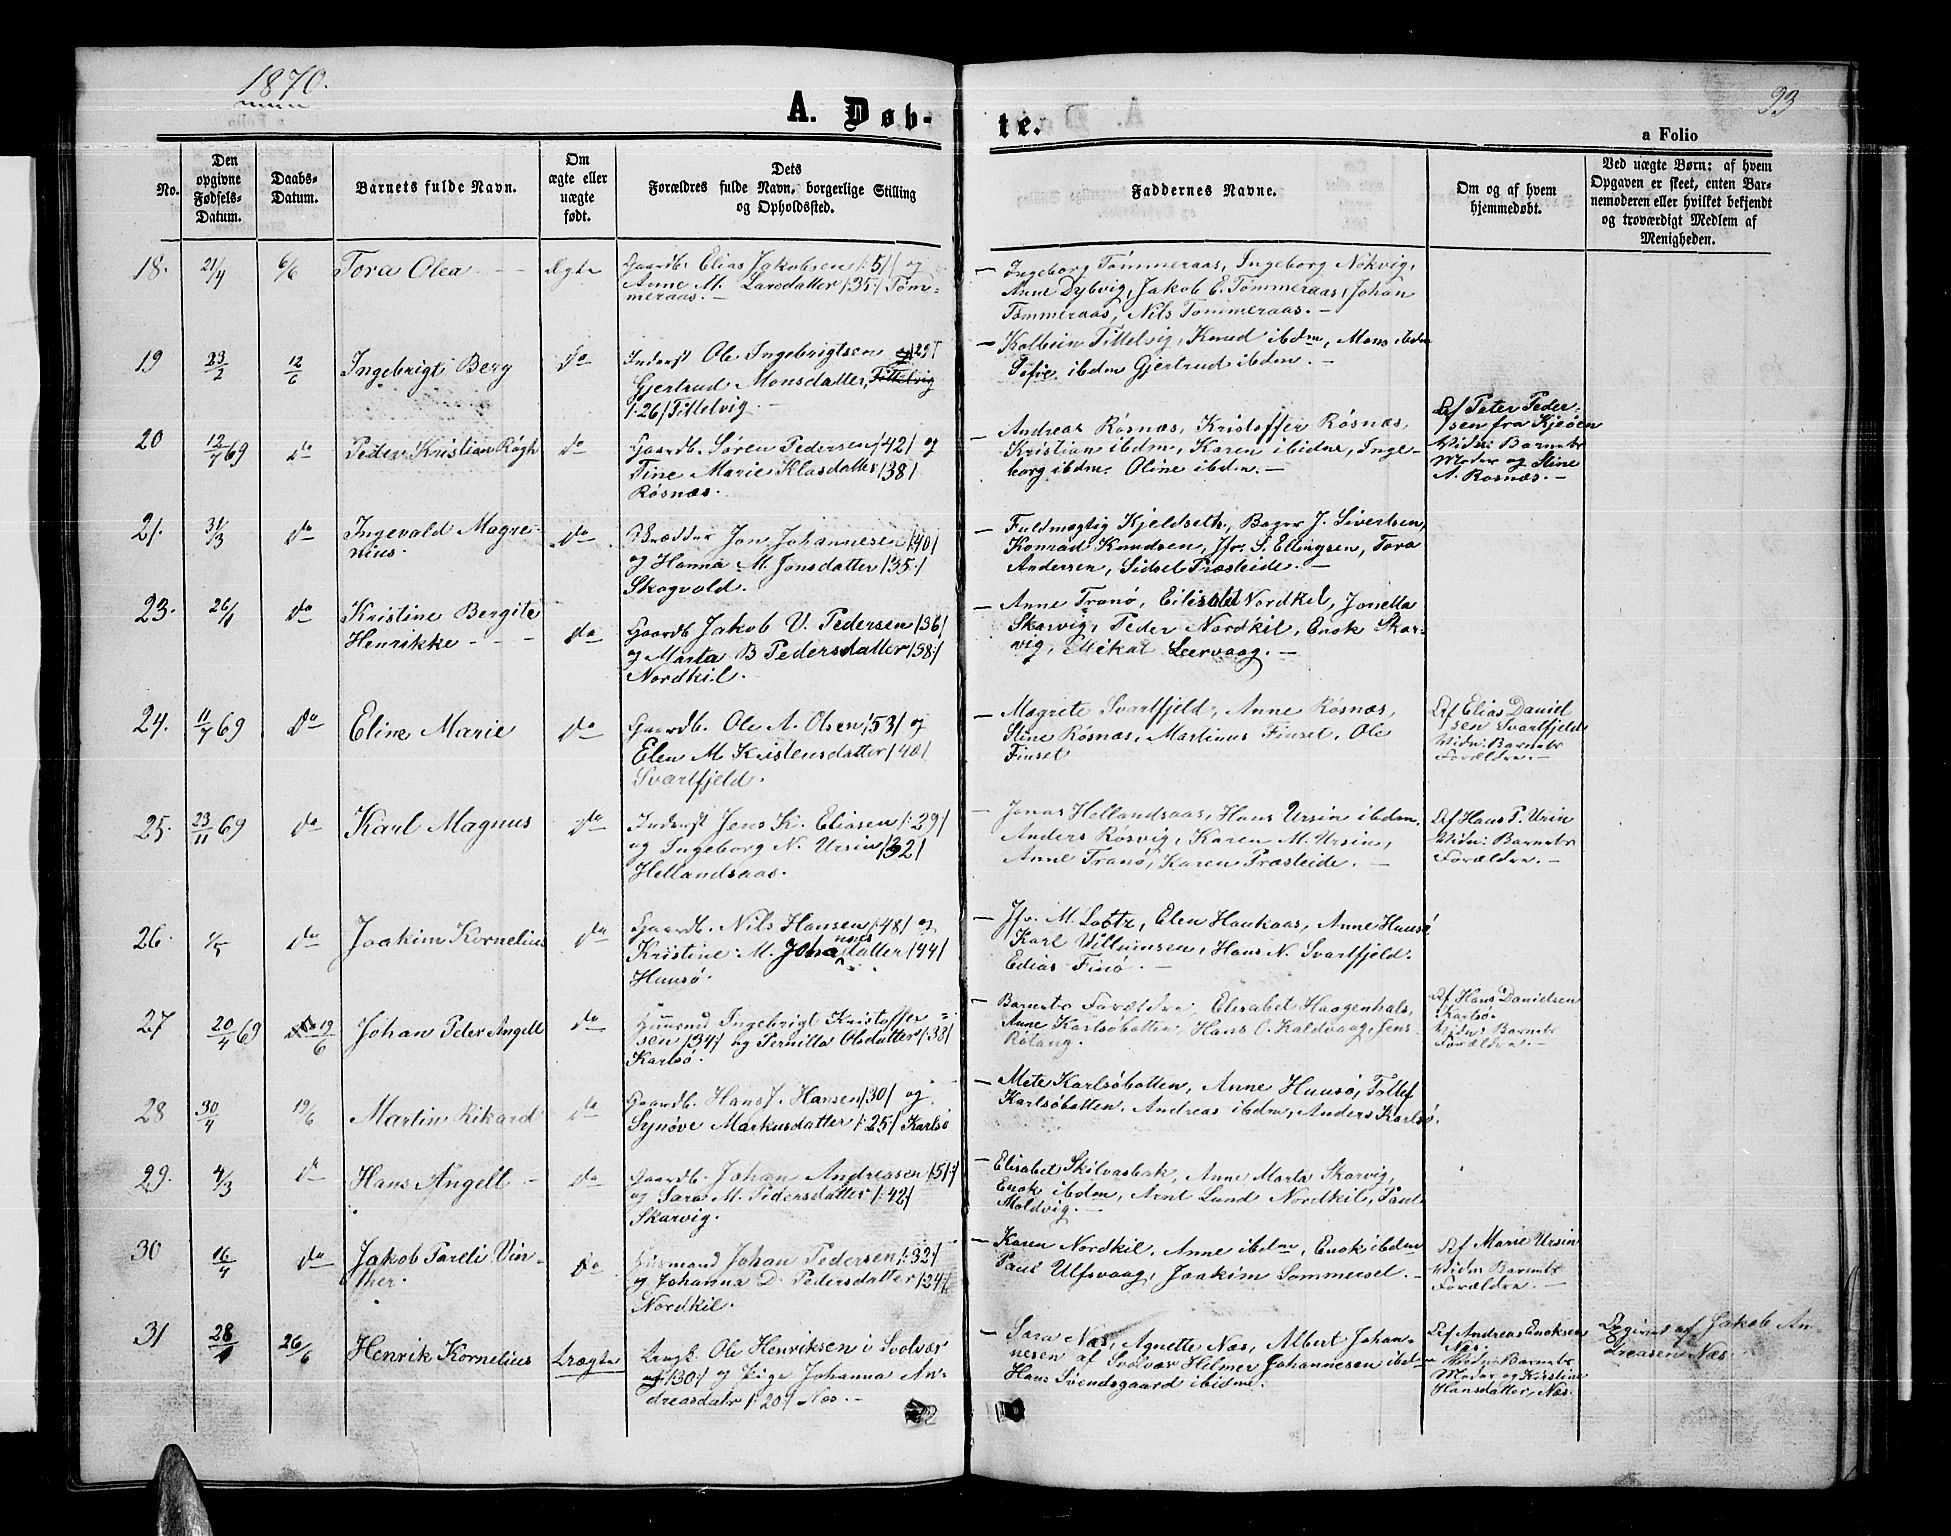 1870.
93
A. Døb-
te.
a Folio
No.
Den
opgivne
Fødsels-
Datum.
Daabs-
Datum.
Barnets fulde Navn.
Om
ægte eller
uægte
født.
Dets
Forældres fulde Navn, borgerlige Stilling
og Opholdssted.
Faddernes Navne.
Om og af hvem
hjemmedøbt.
Ved uægte Børn: af hvem
Opgaven er skeet, enten Bar-
nemoderen eller hvilket bekjendt
og troværdigt Medlem af
Menigheden.
18. 21/4 6/6 Tora Olea Ægte
Gaardb. Elias Jakobsen /:51/ og
Anne M. Larsdatter /35:/ Tøm-
meraas.
Ingeborg Tømmeraas, Ingeborg Nökvig,
Anne Dybvig, Jakob E. Tømmeraas, Johan
Tømmeraas, Nils Tømmeraas.
19 23/2 12/6 Ingebrigt Berg do
Inderst Ole Ingebrigtsen /29/
Gjertrud Monsdatter, Tittelvig
/:26/ Tittelvig
Kolbein Tittelvig, Knud ibdm, Mons ibdm
Sofie ibdm Gjertrud ibdm.
20 12/7 69 do Peder Kristian Røgh do
Gaardb. Søren Pedersen /42/ og
Tine Marie Klasdatter /38/
Røsnæs.
Andreas Røsnæs, Kristoffer Røsnæs,
Kristian ibdm, Karen ibidm, Inge-
borg ibdm. Oline ibdm.
Af Peter Peder-
sen fra Kjøen
Vidn: Barnets
Moder og Stine
A. Rosnæs.
21. 31/3 do Ingevald Magre-
nius. do
Skrædder Jon Johannesen /40/
og Hanna M. Jonsdatter /35:/
Skogvold.
Fuldmægtig Kjeldseth, Bager J. Sivertsen,
Konrad Knudsen, Jfr. S. Ellingsen, Tora
Andersen, Sidsel Præsteide.
23. 26/1 do Kristine Bergite
Henrikke do
Gaardb. Jakob U. Pedersen /36/
og Marta B Pedersdatter /38:/
Nordkil.
Anne Tranø, Elisabet Nordkil, Jonetta
Skarvig, Peder Nordkil, Enok Skar-
vig, Mikal Leervaag.
24. 11/7 69 do Eline Marie do
Gaardb. Ole A. Olsen /53/ og
Elen M. Kristensdatter /40/
Svartfjeld.
Magrete Svartfjeld, Anne Røsnæs,
Stine Røsnæs, Martinus Finset, Ole
Finset
Af Elias Daniel
sen Svartfjeld
Vidn: Barnets
Forældre.
25. 23/11 69 do Karl Magnus do
Inderst Jens K. Eliasen /:29/
og Ingeborg N. Ursin /32/
Hellandsaas.
Jonas Hellandsaas, Hans Ursin ibdm.
Anders Røsvig, Karen M. Ursin,
Anne Tranø, Karen Præsteide.
Af Hans P. Urin
Vidn: Barnets
Forældre.
26. 1/5 do Joakim Kornelius do
Gaardb. Nils Hansen /48/ og
Kristine M. Johannesdatter /44/
Hunsø.
Jfr. M. Lottz, Elen Haukaas, Anne Hunsø
Karl Villumsen, Hans N. Svartfjeld.
Edias Finø.
27 20/4 69 19/6 Johan Peter Angell do
Huusmd Ingebrigt Kristoffer-
sen /34/ og Pernilla Olsdatter /:38/
Karlsø.
Barnets Forældre, Elisabet Haagenhals,
Anne Karlsøbotten, Hans O. Kaldvaag, Jens
Rotang.
Af Hans Danielsen
Karlsø.
Vidn: Barnets
Forældre.
28 30/4 19/6 Martin Rikard do
Gaardb. Hans J. Hansen /30/ og
Synøve Markusdatter /:25/ Karlsø
Mete Karlsøbotten, Anne Hunsø, Tollef
Karlsøbotten, Andreas ibdm, Anders Karlsø.
29. 4/3 do Hans Angell do
Gaardb. Johan Andreasen /51:/
og Sara M. Pedersdatter /:42/
Skarvig.
Elisabet Skilvasbak, Anne Marta Skarvig,
Enok ibdm, Arnt Lund Nordkil, Paul
Moldvig.
30 16/4 do Jakob Pareli Vin-
ther. do
Husmand Johan Pedersen /:32/
og Johanna D. Pedersdatter /:24/
Nordkil.
Karen Nordkil, Anne ibdm, Enok ibdm
Paul Ulfsvaag, Joakim Sommersel.
Af Marie Ursin
Vidn: Barnets
Forældre.
31 28/1 26/6 Henrik Kornelius Uægte
Ungk. Ole Henriksen i Svolvær
/30:/ og Pige Johanna An-
dreasdatr /:20/ Næs.
Sara Næs, Agnette Næs, Albert Johan-
nesen af Svolvær Helmer Johannesen ibdm
Hans Svendsgaard ibidm.
Af Andreas Enoksen
Næs.
Vidn: Barnets
Moder og Kirstine
Hansdatter, Næs.
Opgivet af Jakob An-
dreasen Næs.